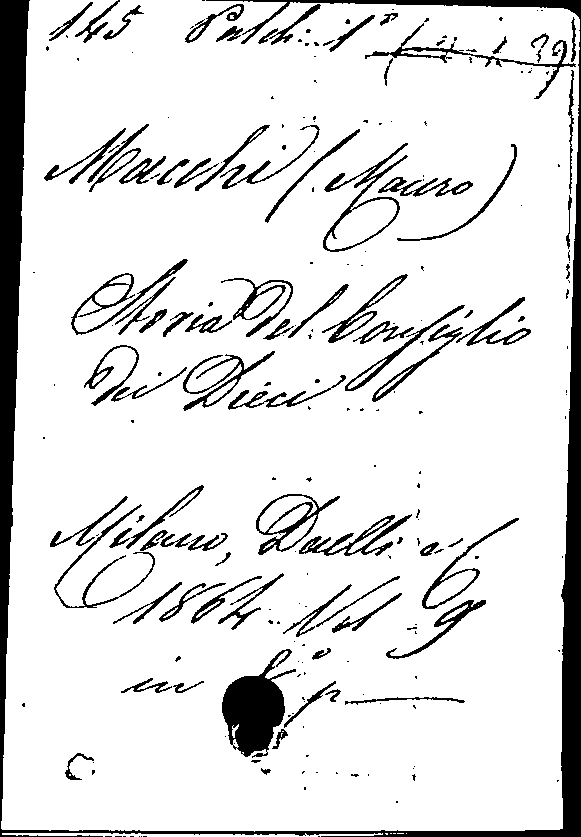 145 Palch. 1°
Macchi (Mauro)
Storia del Consiglio
dei Dieci
Milano, Daelli e C.
1864 Vol 9
in 8° p
C